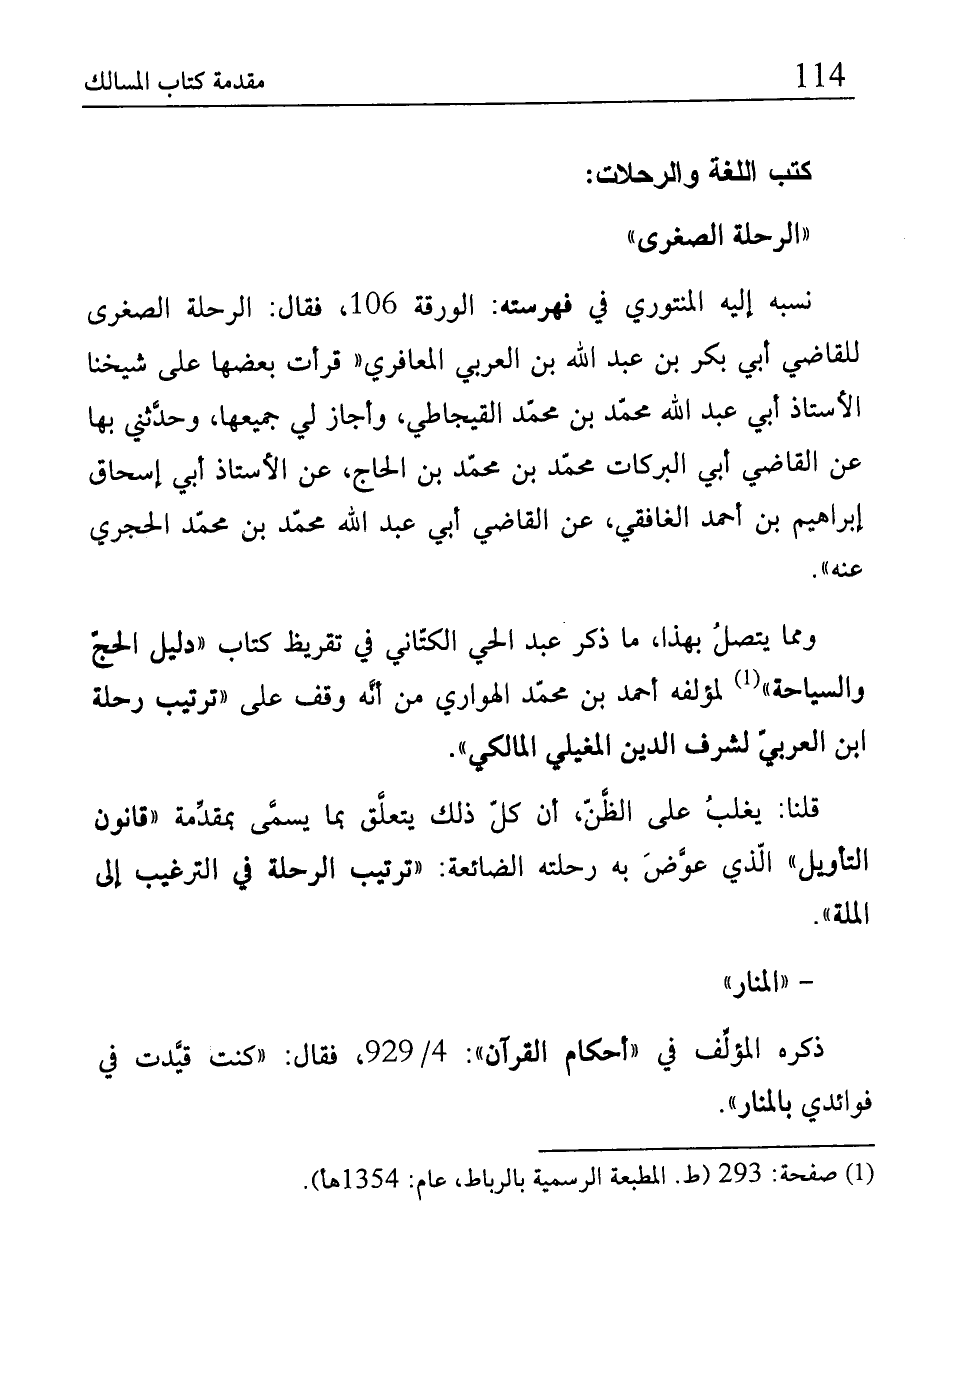 114
مقدمة كتاب المسالك
كتب اللغة والرحلات:
«الرحلة الصغرى»
نسبه إليه المنتوري في فهرسته: الورقة 106، فقال: الرحلة الصغرى
للقاضي أبي بكر بن عبد الله بن العربي المعافري« قرأت بعضها على شيخنا
الأستاذ أبي عبد الله محمّد بن محمّد القيجاطي، وأجاز لي جميعها، وحدَّثني بها
عن القاضي أبي البركات محمّد بن محمّد بن الحاج، عن الأستاذ أبي إسحاق
إبراهيم بن أحمد الغافقي، عن القاضي أبي عبد الله محمّد بن محمّد الحجري
عنه».
ومما يتصلُ بهذا، ما ذكر عبد الحي الكتّاني في تقريظ كتاب «دليل الحجّ
والسياحة»(1) لمؤلفه أحمد بن محمّد الهواري من أنَّه وقف على «ترتيب رحلة
ابن العربيّ لشرف الدين المغيلي المالكي».
قلنا: يغلبُ على الظَّنّ، أن كلّ ذلك يتعلَّق بما يسمَّى بمقدِّمة «قانون
التأويل» الّذي عوَّضَ به رحلته الضائعة: «ترتيب الرحلة في الترغيب إلى
الملة».
– «المنار»
ذكره المؤلِّف في «أحكام القرآن»: 4/ 929، فقال: «كنت قيَّدت في
فوائدي بالمنار».
(1) صفحة: 293 (ط. المطبعة الرسمية بالرباط، عام: 1354هـ).